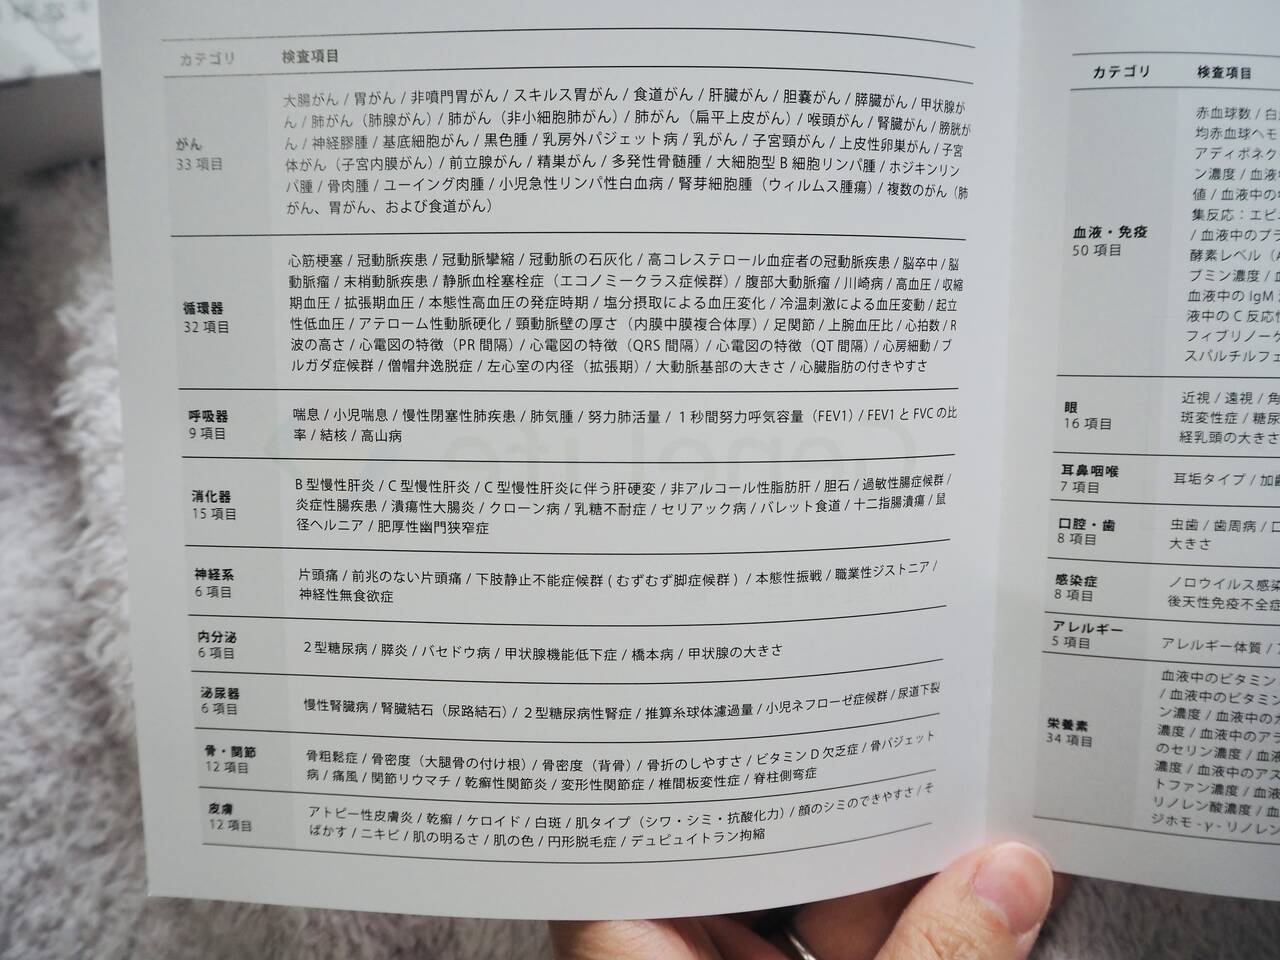 カテゴリ 検査項目
がん
33 項目
大腸がん / 胃がん / 非噴門胃がん / スキルス胃がん / 食道がん / 肝臓がん / 胆嚢がん / 膵臓がん / 甲状腺が
ん / 肺がん（肺腺がん）/ 肺がん（非小細胞肺がん）/ 肺がん（扁平上皮がん）/ 喉頭がん / 腎臓がん / 膀胱が
ん / 神経膠腫 / 基底細胞がん / 黒色腫 / 乳房外パジェット病 / 乳がん / 子宮頸がん / 上皮性卵巣がん / 子宮
体がん（子宮内膜がん）/ 前立腺がん / 精巣がん / 多発性骨髄腫 / 大細胞型 B 細胞リンパ腫 / ホジキンリン
パ腫 / 骨肉腫 / ユーイング肉腫 / 小児急性リンパ性白血病 / 腎芽細胞腫（ウィルムス腫瘍）/ 複数のがん（肺
がん、胃がん、および食道がん）
循環器
32 項目
心筋梗塞 / 冠動脈疾患 / 冠動脈攣縮 / 冠動脈の石灰化 / 高コレステロール血症者の冠動脈疾患 / 脳卒中 / 脳
動脈瘤 / 末梢動脈疾患 / 静脈血栓塞栓症（エコノミークラス症候群）/ 腹部大動脈瘤 / 川崎病 / 高血圧 / 収縮
期血圧 / 拡張期血圧 / 本態性高血圧の発症時期 / 塩分摂取による血圧変化 / 冷温刺激による血圧変動 / 起立
性低血圧 / アテローム性動脈硬化 / 頸動脈壁の厚さ（内膜中膜複合体厚）/ 足関節 / 上腕血圧比 / 心拍数 / R
波の高さ / 心電図の特徴（PR 間隔）/ 心電図の特徴（QRS 間隔）/ 心電図の特徴（QT 間隔）/ 心房細動 / ブ
ルガダ症候群 / 僧帽弁逸脱症 / 左心室の内径（拡張期）/ 大動脈基部の大きさ / 心臓脂肪の付きやすさ
呼吸器
9 項目
喘息 / 小児喘息 / 慢性閉塞性肺疾患 / 肺気腫 / 努力肺活量 / 1 秒間努力呼気容量（FEV1）/ FEV1 と FVC の比
率 / 結核 / 高山病
消化器
15 項目
B 型慢性肝炎 / C 型慢性肝炎 / C 型慢性肝炎に伴う肝硬変 / 非アルコール性脂肪肝 / 胆石 / 過敏性腸症候群 /
炎症性腸疾患 / 潰瘍性大腸炎 / クローン病 / 乳糖不耐症 / セリアック病 / バレット食道 / 十二指腸潰瘍 / 鼠
径ヘルニア / 肥厚性幽門狭窄症
神経系
6 項目
片頭痛 / 前兆のない片頭痛 / 下肢静止不能症候群 ( むずむず脚症候群 ) / 本態性振戦 / 職業性ジストニア /
神経性無食欲症
内分泌
6 項目
2 型糖尿病 / 膵炎 / バセドウ病 / 甲状腺機能低下症 / 橋本病 / 甲状腺の大きさ
泌尿器
6 項目
慢性腎臓病 / 腎臓結石（尿路結石）/ 2 型糖尿病性腎症 / 推算糸球体濾過量 / 小児ネフローゼ症候群 / 尿道下裂
骨・関節
12 項目
骨粗鬆症 / 骨密度（大腿骨の付け根）/ 骨密度（背骨）/ 骨折のしやすさ / ビタミン D 欠乏症 / 骨パジェット
病 / 痛風 / 関節リウマチ / 乾癬性関節炎 / 変形性関節症 / 椎間板変性症 / 脊柱側弯症
皮膚
12 項目
アトピー性皮膚炎 / 乾癬 / ケロイド / 白斑 / 肌タイプ（シワ・シミ・抗酸化力）/ 顔のシミのできやすさ / そ
ばかす / ニキビ / 肌の明るさ / 肌の色 / 円形脱毛症 / デュピュイトラン拘縮
カテゴリ 検査項目
血液・免疫
50 項目
赤血球数 / 白
均赤血球ヘモ
アディポネク
ン濃度 / 血液
値 / 血液中の
集反応：エピ
/ 血液中のプラ
酵素レベル（A
ブミン濃度 /
血液中の IgM
液中の C 反応性
フィブリノーゲ
スパルチルフェ
眼
16 項目
近視 / 遠視 / 角
斑変性症 / 糖尿
経乳頭の大きさ
耳鼻咽喉
7 項目
耳垢タイプ / 加齢
口腔・歯
8 項目
虫歯 / 歯周病 / 口
大きさ
感染症
8 項目
ノロウイルス感染
後天性免疫不全症
アレルギー
5 項目
アレルギー体質 /
栄養素
34 項目
血液中のビタミン
/ 血液中のビタミン
ン濃度 / 血液中の
濃度 / 血液中のアラ
のセリン濃度 / 血液
濃度 / 血液中のアス
トファン濃度 / 血液
リノレン酸濃度 / 血
ジホモ - γ - リノレン